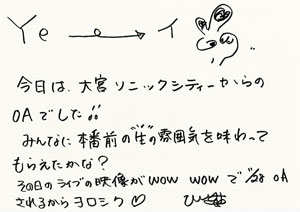 Ye e → イ
今日は、大宮ソニックシティーからの
OAでした!!
みんなに本番前の"生"の雰囲気を味わって
もらえたかな?
その日のライブの映像がwow wowで1/28 OA
されるからヨロシク♡